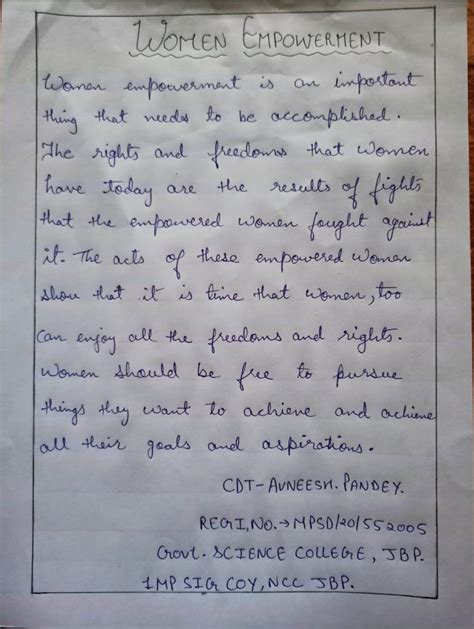 WOMEN EMPOWERMENT
Women empowerment is an important
thing that needs to be accomplished.
The rights and freedoms that women
have today are the results of fights
that the empowered women fought against
it. The acts of these empowered women
show that it is time that women, too
can enjoy all the freedoms and rights.
Women should be free to pursue
things they want to achieve and achieve
all their goals and aspirations.
CDT-AVNEESH. PANDEY.
REGI,NO.→MPSD/20/552005
Govt. SCIENCE COLLEGE, JBP.
1MP SIG COY, NCC JBP.